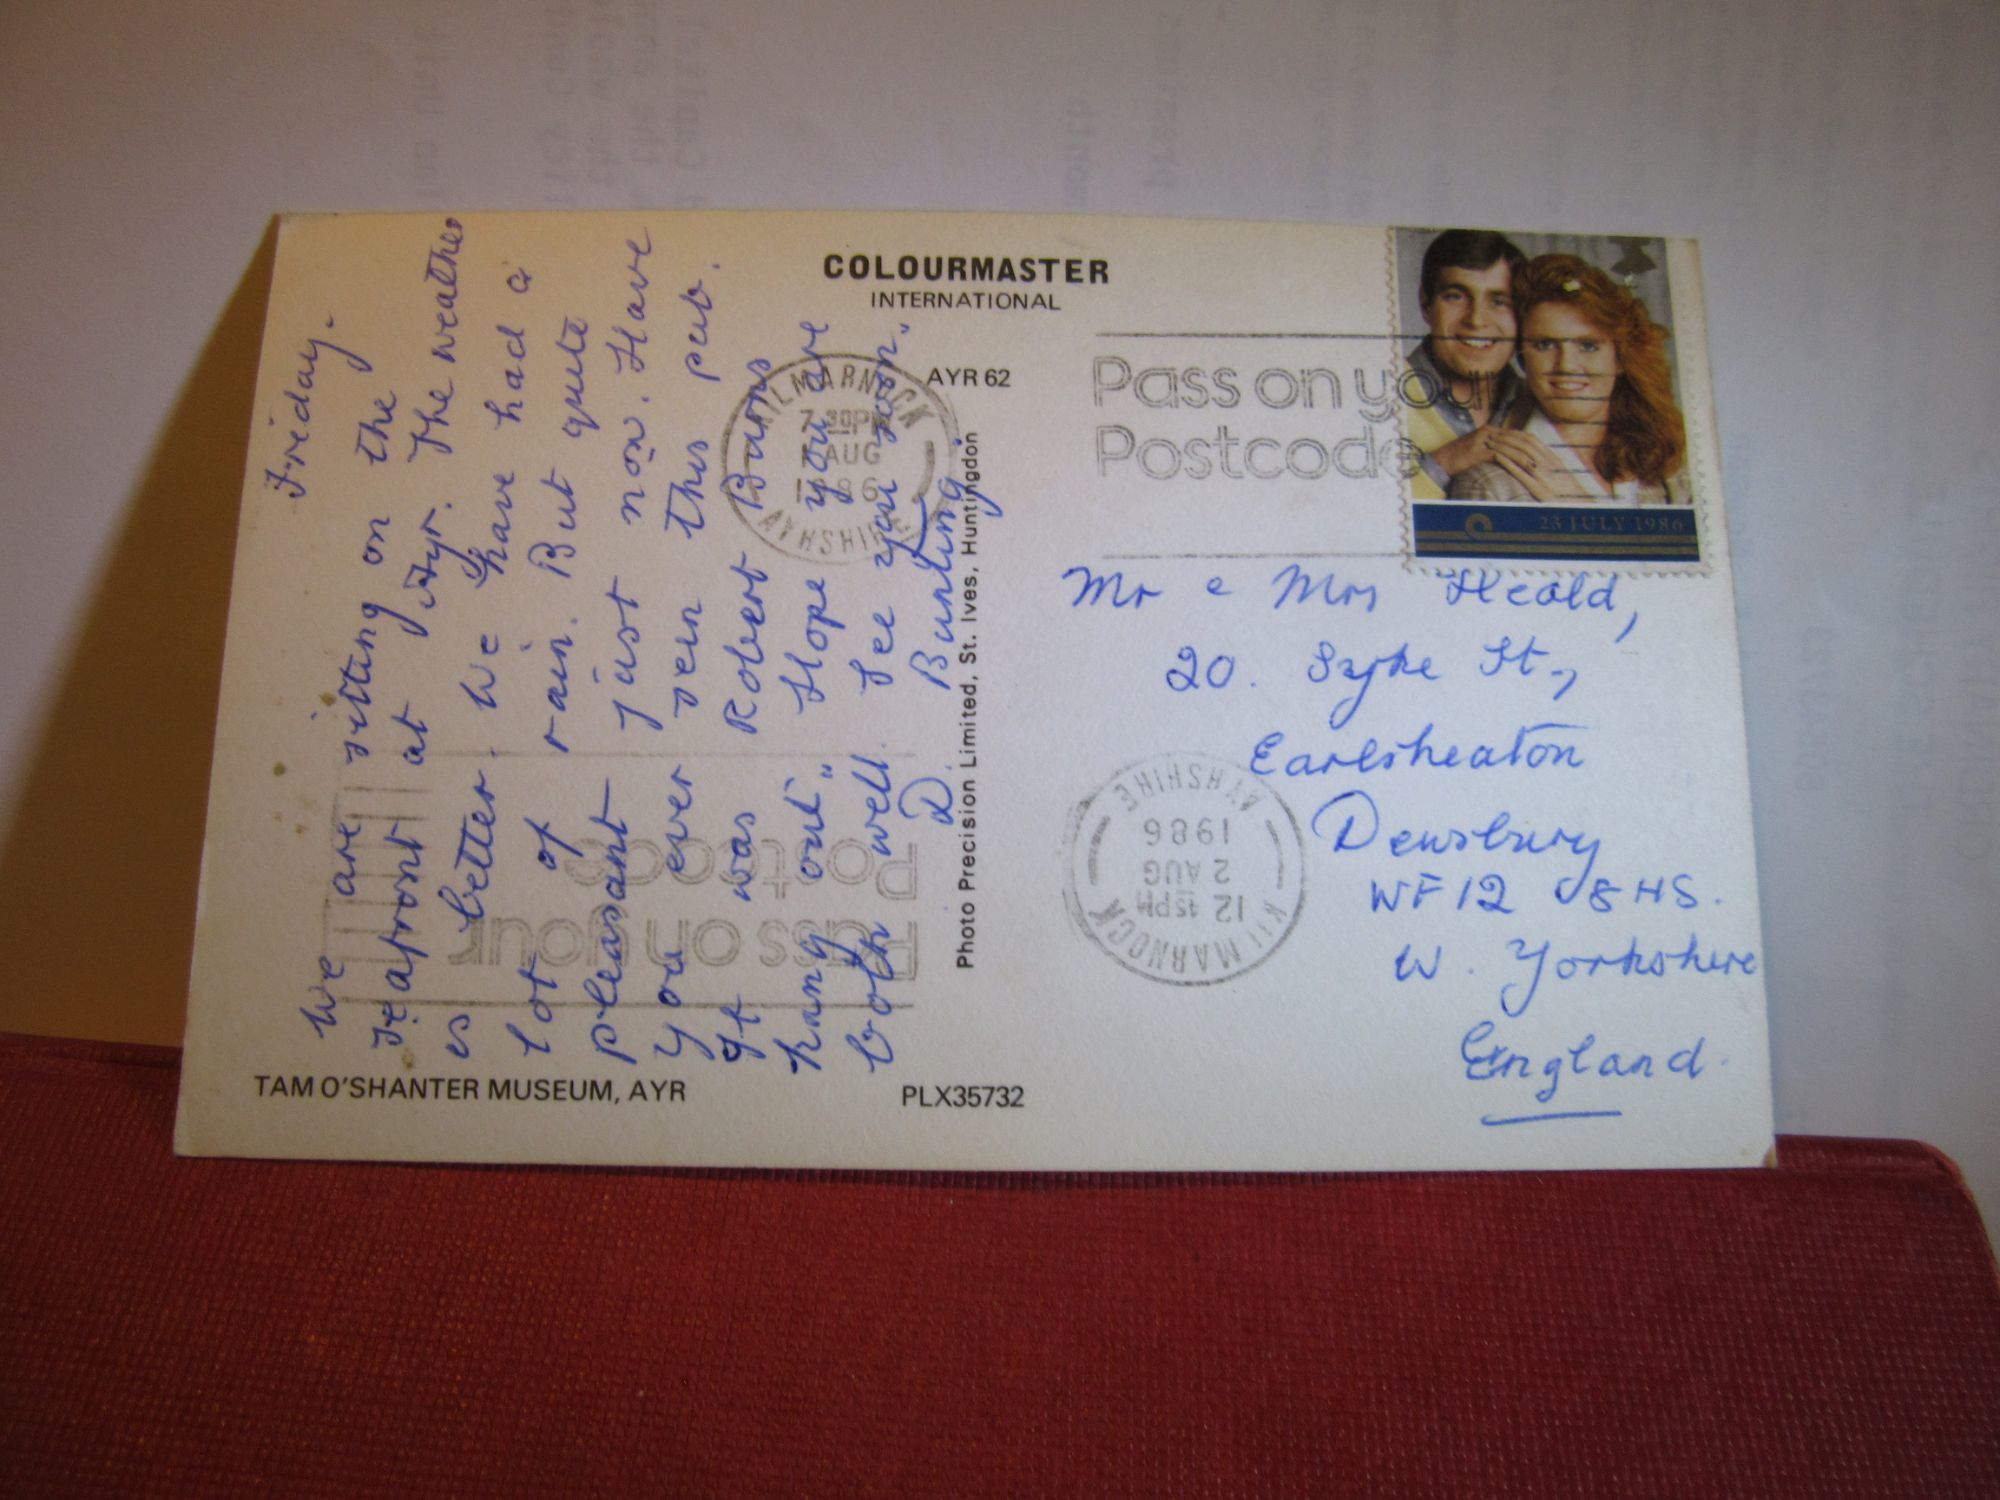 COLOURMASTER
INTERNATIONAL
AYR 62
Friday.
We are sitting on the
seafront at Ayr. The weather
is better. We have had a
lot of rain. But quite
pleasant just now. Have
you ever seen this pub.
It was Robert Burns
hang out" Hope you are
both well. See you soon."
D. Bunting.
Photo Precision Limited, St. Ives, Huntingdon
TAM O'SHANTER MUSEUM, AYR
PLX35732
KILMARNOCK
7.30PM
AUG
1986
AYRSHIRE
Pass on your
Postcode
23 JULY 1986
Mr & Mrs Heald,
20. Syke St.,
Earlsheaton
Dewsbury
WF12 8HS.
W. Yorkshire
England.
KILMARNOCK
12.45PM
2 AUG
1986
AYRSHIRE
Pass on your
Postcode